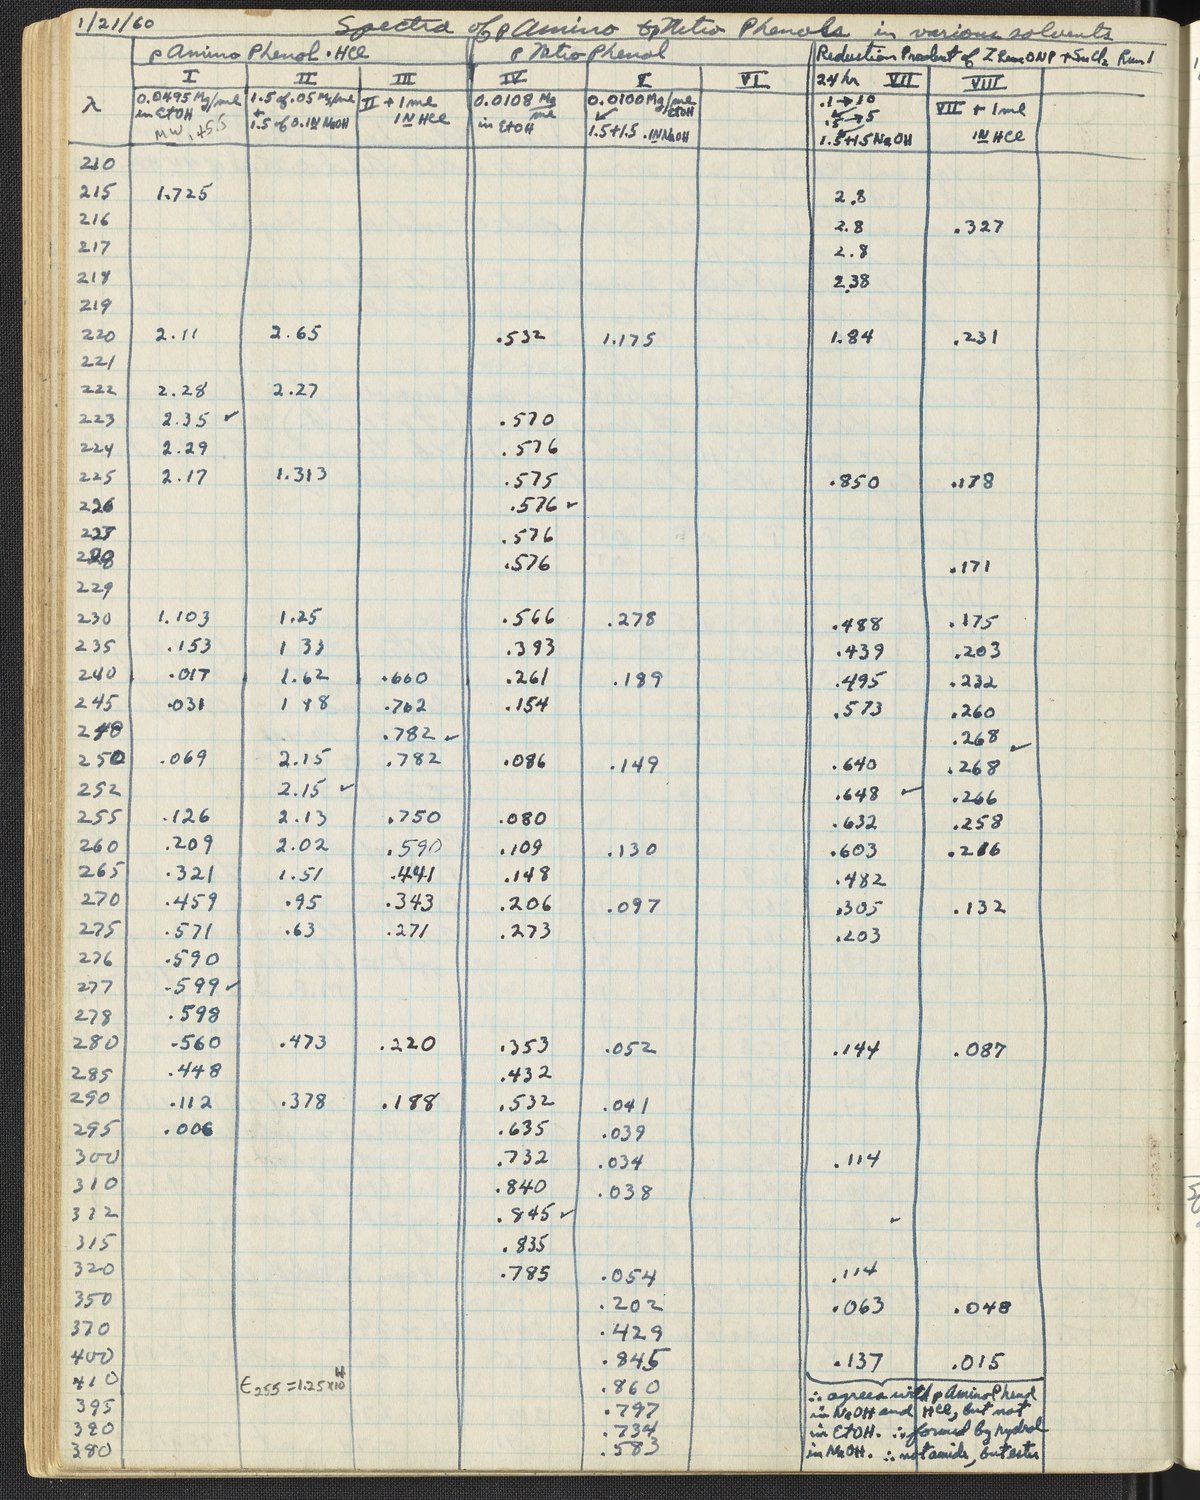 1/21/60 Spectra of p Amino & p Nitro Phenols in various solvents
p Amino Phenol · HCl p Nitro Phenol Reduction Product of + SnCl2 Run 1
I II III IV V VI 24 hr VII VIII
λ 0.0495 Mg/ml in EtOH 1.5 of .05 Mg/ml + 1.5 of 0.1N NaOH II + 1 ml 1N HCl 0.0108 Mg/ml in EtOH 0.0100 Mg/ml EtOH 1.5+1.5 .1N NaOH .1→10 .5→5 1.5+1.5 NaOH VII + 1 ml 1N HCl
MW
210
215 1.725 2.8
216 2.8 .327
217 2.8
218 2.38
219
220 2.11 2.65 .532 1.175 1.84 .231
221
222 2.28 2.27
223 2.35 ✓ .570
224 2.29 .576
225 2.17 1.313 .575 .850 .178
226 .576 ✓
227 .576
228 .576 .171
229
230 1.103 1.25 .566 .278 .488 .175
235 .153 1 33 .393 .439 .203
240 .017 1.62 .660 .261 .189 .495 .232
245 .031 1 98 .762 .154 .573 .260
248 .782 ✓ .268 ✓
250 .069 2.15 .782 .086 .149 .640 .268
252 2.15 ✓ .648 ✓ .266
255 .126 2.13 .750 .080 .632 .258
260 .209 2.02 .590 .109 .130 .603 .216
265 .321 1.51 .441 .148 .482
270 .459 .95 .343 .206 .097 .305 .132
275 .571 .63 .271 .273 .203
276 .590
277 .599 ✓
278 .598
280 .560 .473 .220 .353 .052 .144 .087
285 .448 .432
290 .112 .378 .188 .532 .041
295 .006 .635 .039
300 .732 .034 .114
310 .840 .038
312 .845 ✓
315 .835
320 .785 .054 .114
350 .202 .063 .048
370 .429
400 .845 .137 .015
410 ϵ255 = 1.25 × 10^4 .860 ∴ agrees with p Amino Phenol
395 .797 in NaOH and HCl, but not
390 .734 in EtOH. ∴ formed by hydrol
380 .583 in NaOH. ∴ not amide, but ester